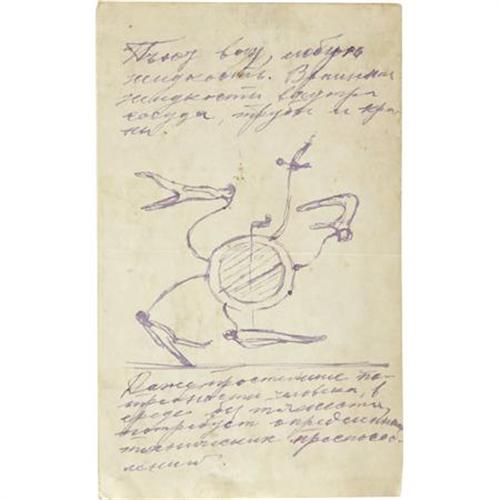 Пьют воду, любую
жидкость. Вращение
жидкости внутри
сосуда, трубы и кра-
ны.
Даже простейшие по-
требности человека, в
среде без тяжести,
потребуют определенных
технических приспособ-
лений.